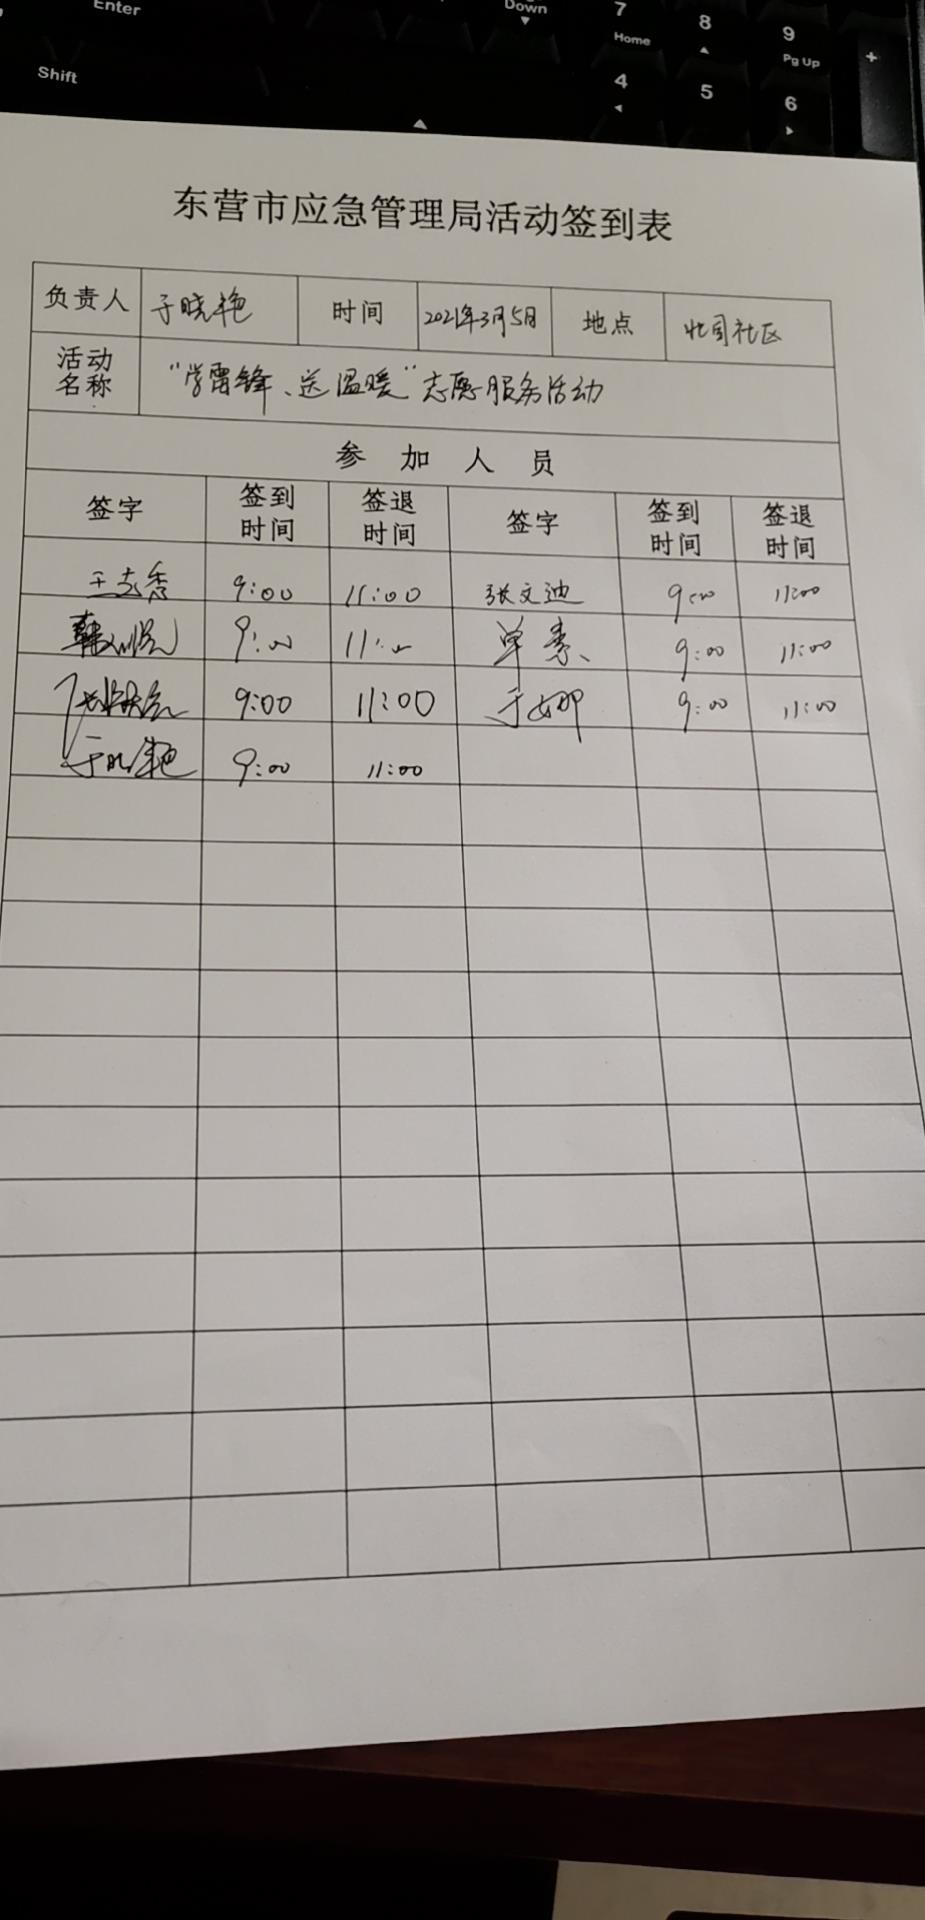 Enter
Down
7
Home
8
9
Pg Up
+
Shift
4
5
6
东营市应急管理局活动签到表
负责人 于晓艳 时间 2021年3月5日 地点 社区
活动名称 "学雷锋、送温暖"志愿服务活动
参加人员
签字 签到时间 签退时间 签字 签到时间 签退时间
王志秀 9:00 11:00 张文迪 9:00 11:00
9:00 11:00 单素 9:00 11:00
9:00 11:00 于娜 9:00 11:00
于晓艳 9:00 11:00